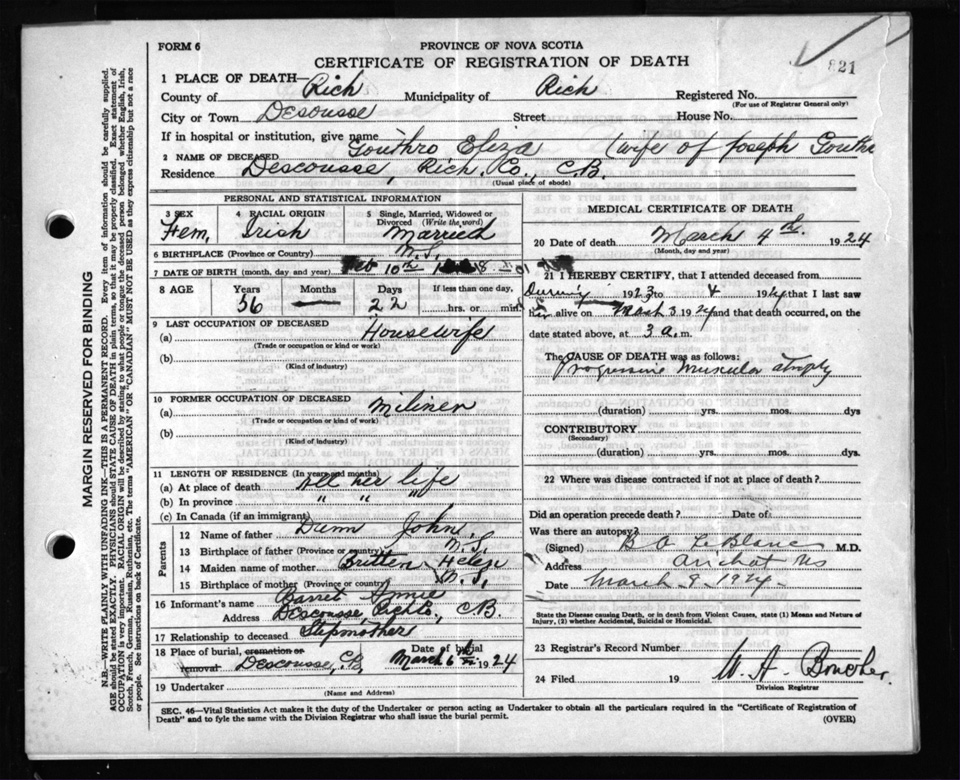 FORM 6
PROVINCE OF NOVA SCOTIA
CERTIFICATE OF REGISTRATION OF DEATH
821
1 PLACE OF DEATH—
County of Rich Municipality of Rich Registered No.
(For use of Registrar General only)
City or Town Descousse Street House No.
If in hospital or institution, give name
2 NAME OF DECEASED Gouthro Eliza (wife of Joseph Gouthr
Residence Descousse, Rich. Co., C.B.
(Usual place of abode)
PERSONAL AND STATISTICAL INFORMATION
3 SEX Fem,
4 RACIAL ORIGIN Irish
5 Single, Married, Widowed or Divorced (Write the word) Married
6 BIRTHPLACE (Province or Country) N.S.
7 DATE OF BIRTH (month, day and year) Feb 10th
8 AGE Years 56 Months Days 22 If less than one day, hrs. or min.
9 LAST OCCUPATION OF DECEASED
(a) Housewife
(Trade or occupation or kind or work)
(b)
(Kind of industry)
10 FORMER OCCUPATION OF DECEASED
(a) Miliner
(Trade or occupation or kind of work)
(b)
(Kind of industry)
11 LENGTH OF RESIDENCE (In years and months)
(a) At place of death All her life
(b) In province " " "
(c) In Canada (if an immigrant)
Parents
12 Name of father Dunn John
13 Birthplace of father (Province or country) N.S.
14 Maiden name of mother Britten Helen
15 Birthplace of mother (Province or country) N.S.
16 Informant's name Barret Annie
Address Descousse, Rich Co., C.B.
17 Relationship to deceased Stepmother
18 Place of burial, cremation or removal Descousse, C.B. Date of burial March 6th 1924
19 Undertaker
(Name and Address)
MEDICAL CERTIFICATE OF DEATH
20 Date of death March 4th. 1924
(Month, day and year)
21 I HEREBY CERTIFY, that I attended deceased from
During 1923 to 4 1924 that I last saw
her alive on Mach 3 1924 and that death occurred, on the
date stated above, at 3 a.m.
The CAUSE OF DEATH was as follows:
Progressive Muscular atrophy
(duration) yrs. mos. dys
CONTRIBUTORY
(Secondary)
(duration) yrs. mos. dys.
22 Where was disease contracted if not at place of death?
Did an operation precede death? Date of
Was there an autopsy?
(Signed) B A LeBlanc M.D.
Address Arichat NS
Date March 9. 1924.
State the Disease causing Death, or in death from Violent Causes, state (1) Means and Nature of
Injury, (2) whether Accidental, Suicidal or Homicidal.
23 Registrar's Record Number
24 Filed 19 W. A. Boucher.
Division Registrar
SEC. 46—Vital Statistics Act makes it the duty of the Undertaker or person acting as Undertaker to obtain all the particulars required in the "Certificate of Registration of
Death" and to fyle the same with the Division Registrar who shall issue the burial permit.
(OVER)
MARGIN RESERVED FOR BINDING
N.B.—WRITE PLAINLY WITH UNFADING INK—THIS IS A PERMANENT RECORD. Every item of information should be carefully supplied.
AGE should be stated EXACTLY. PHYSICIANS should STATE CAUSE OF DEATH in plain terms, so that it may be properly classified. Exact statement of
OCCUPATION is very important. RACIAL ORIGIN will be described by stating to what people or tongue the deceased person belonged whether English, Irish,
Scotch, French, German, Russian, Ruthenian, etc. The terms "AMERICAN" or "CANADIAN" MUST NOT BE USED as they express citizenship but not a race
or people. See instructions on back of Certificate.